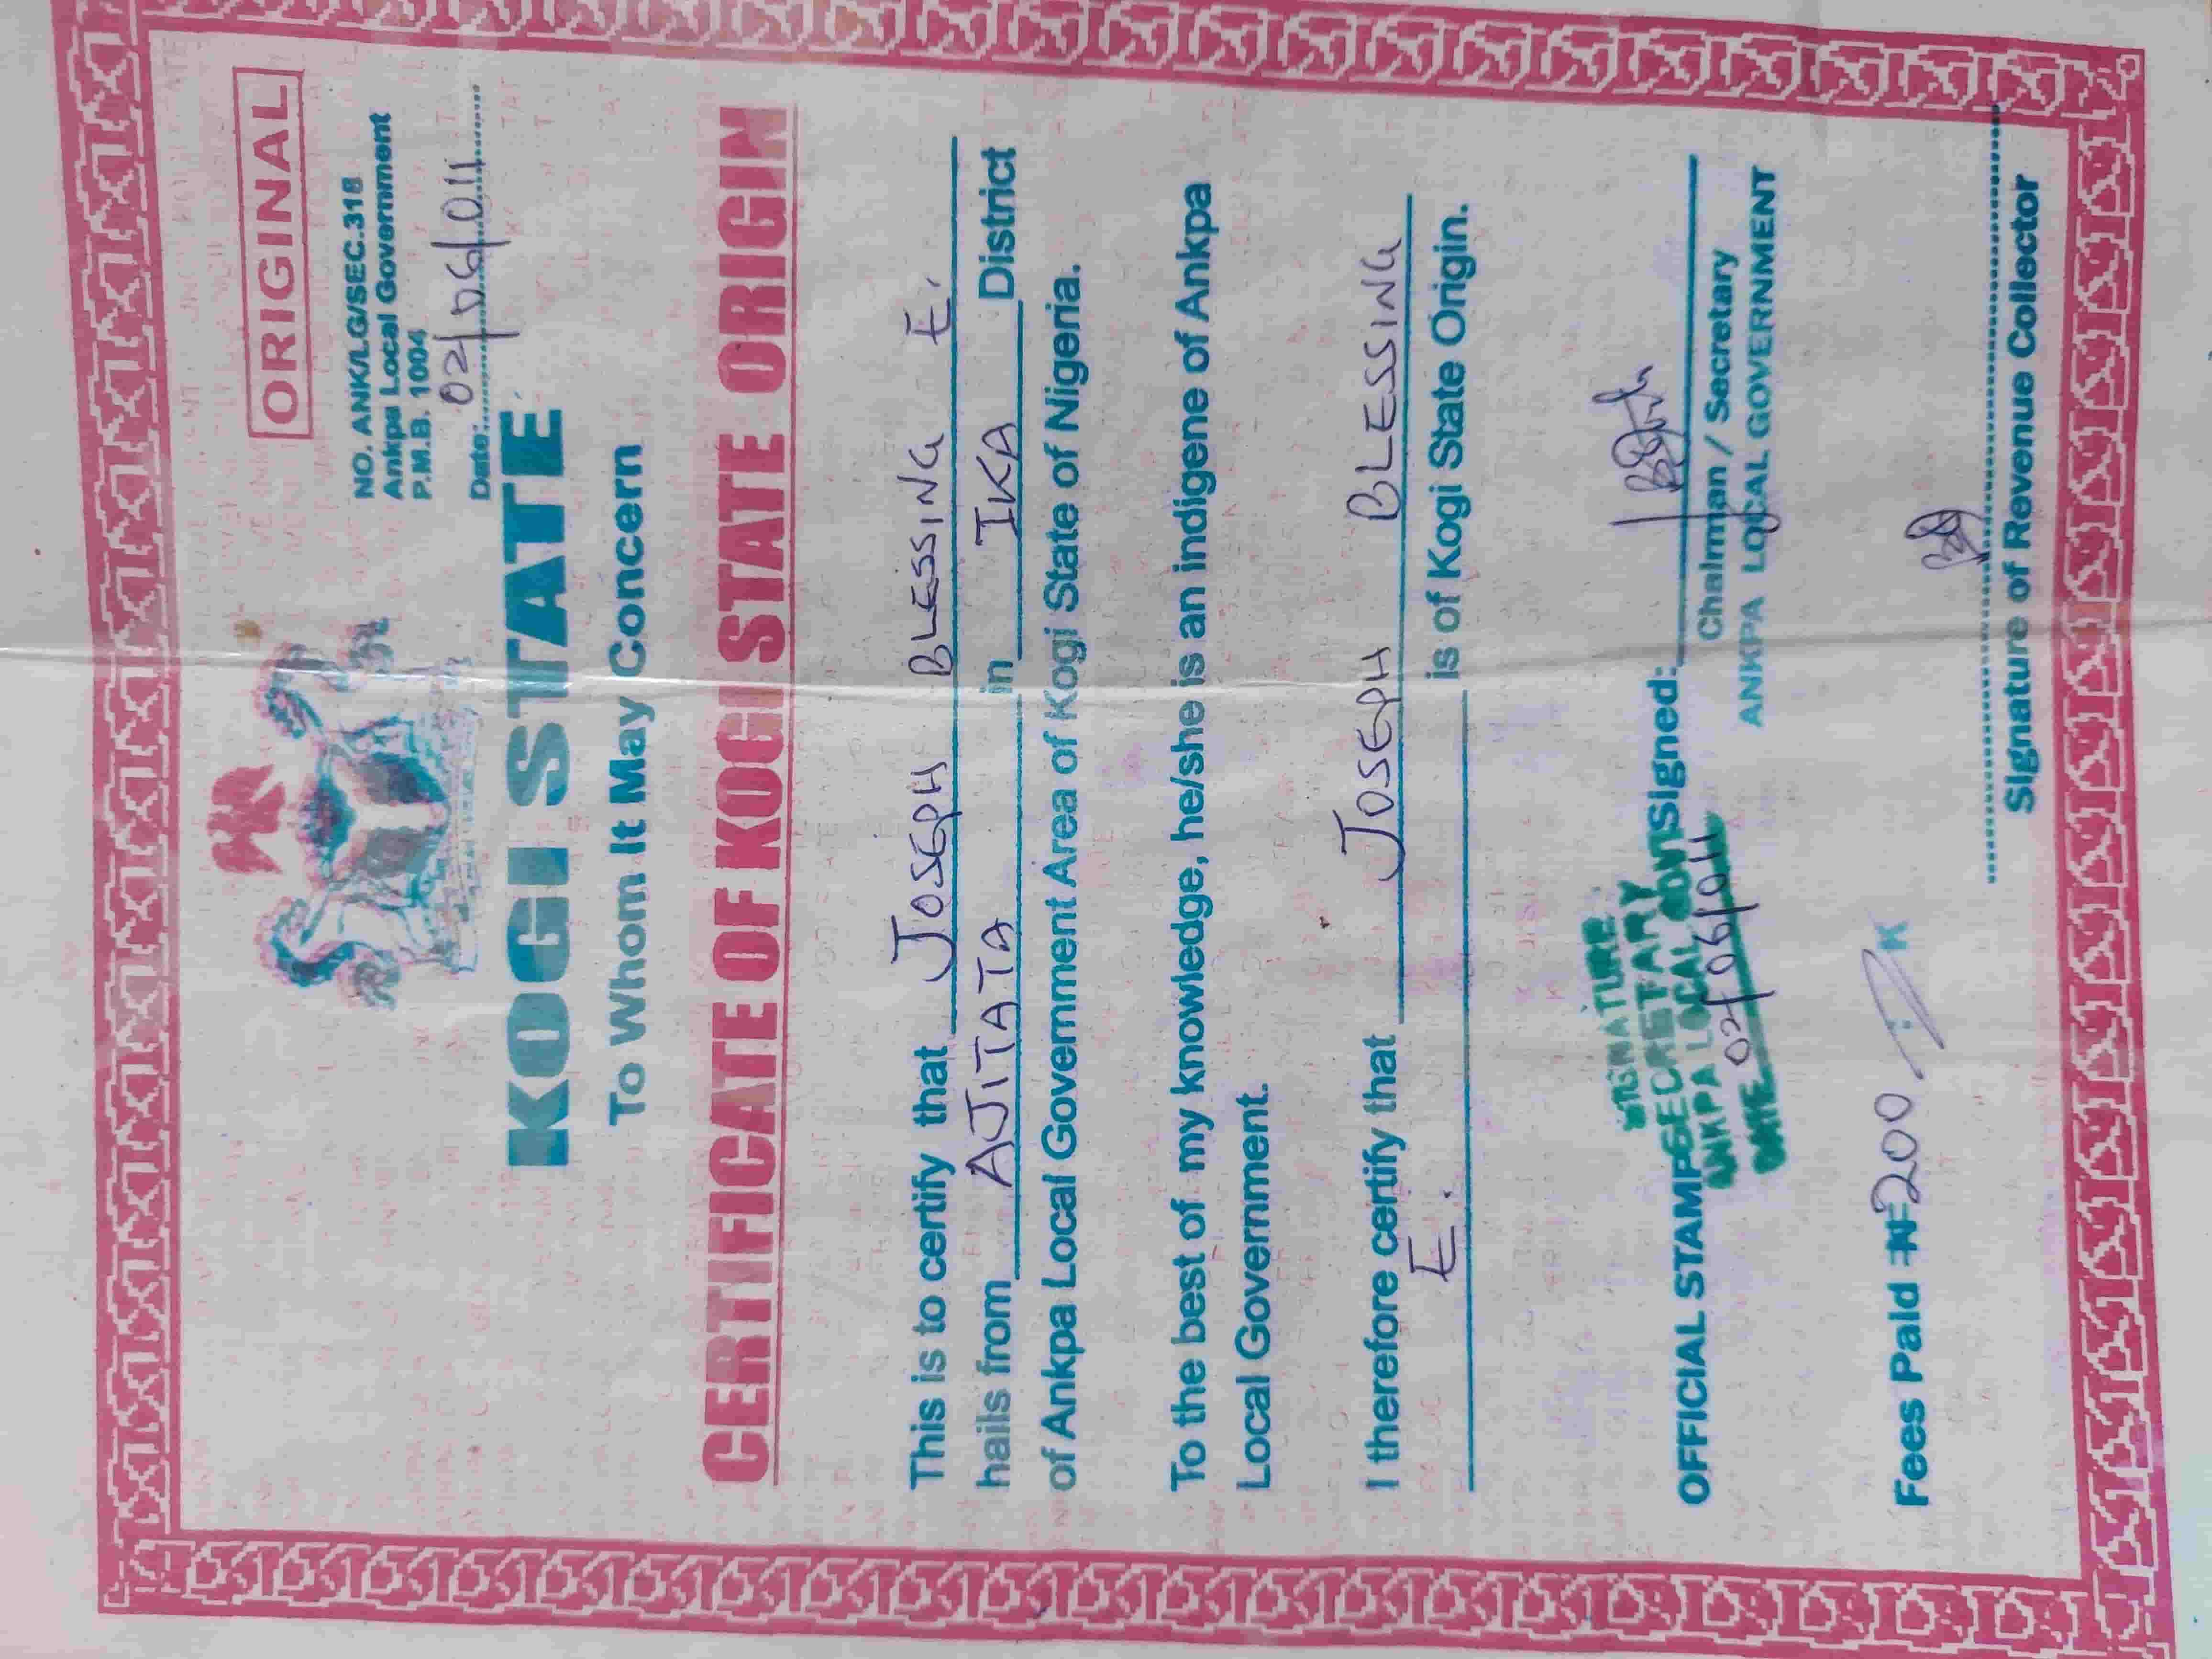 ORIGINAL
NO. ANK/LG/SEC.318
Ankpa Local Government
P.M.B. 1004
Date: 02/06/011
KOGI STATE
To Whom It May Concern
CERTIFICATE OF KOGI STATE ORIGIN
This is to certify that JOSEPH BLESSING E.
hails from AJITATA in IKA District
of Ankpa Local Government Area of Kogi State of Nigeria.
To the best of my knowledge, he/she is an indigene of Ankpa
Local Government.
I therefore certify that JOSEPH BLESSING
E. is of Kogi State Origin.
SIGNATURE
SECRETARY
ANKPA LOCAL GOVT
DATE 02/06/011
OFFICIAL STAMP Signed:
Chairman / Secretary
ANKPA LOCAL GOVERNMENT
Fees Paid ₦ 200 : K
Signature of Revenue Collector